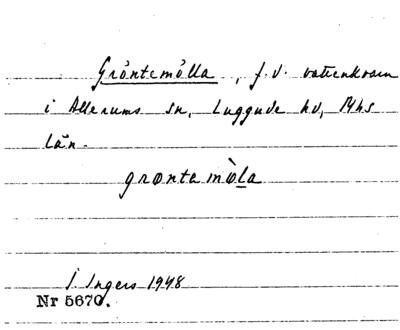 Gröntemölla, f.d. vattenkvarn
i Allerums sn, Luggude hd, Mhs
län.
grøntamǿla
I Ingers 1948
Nr 5670.